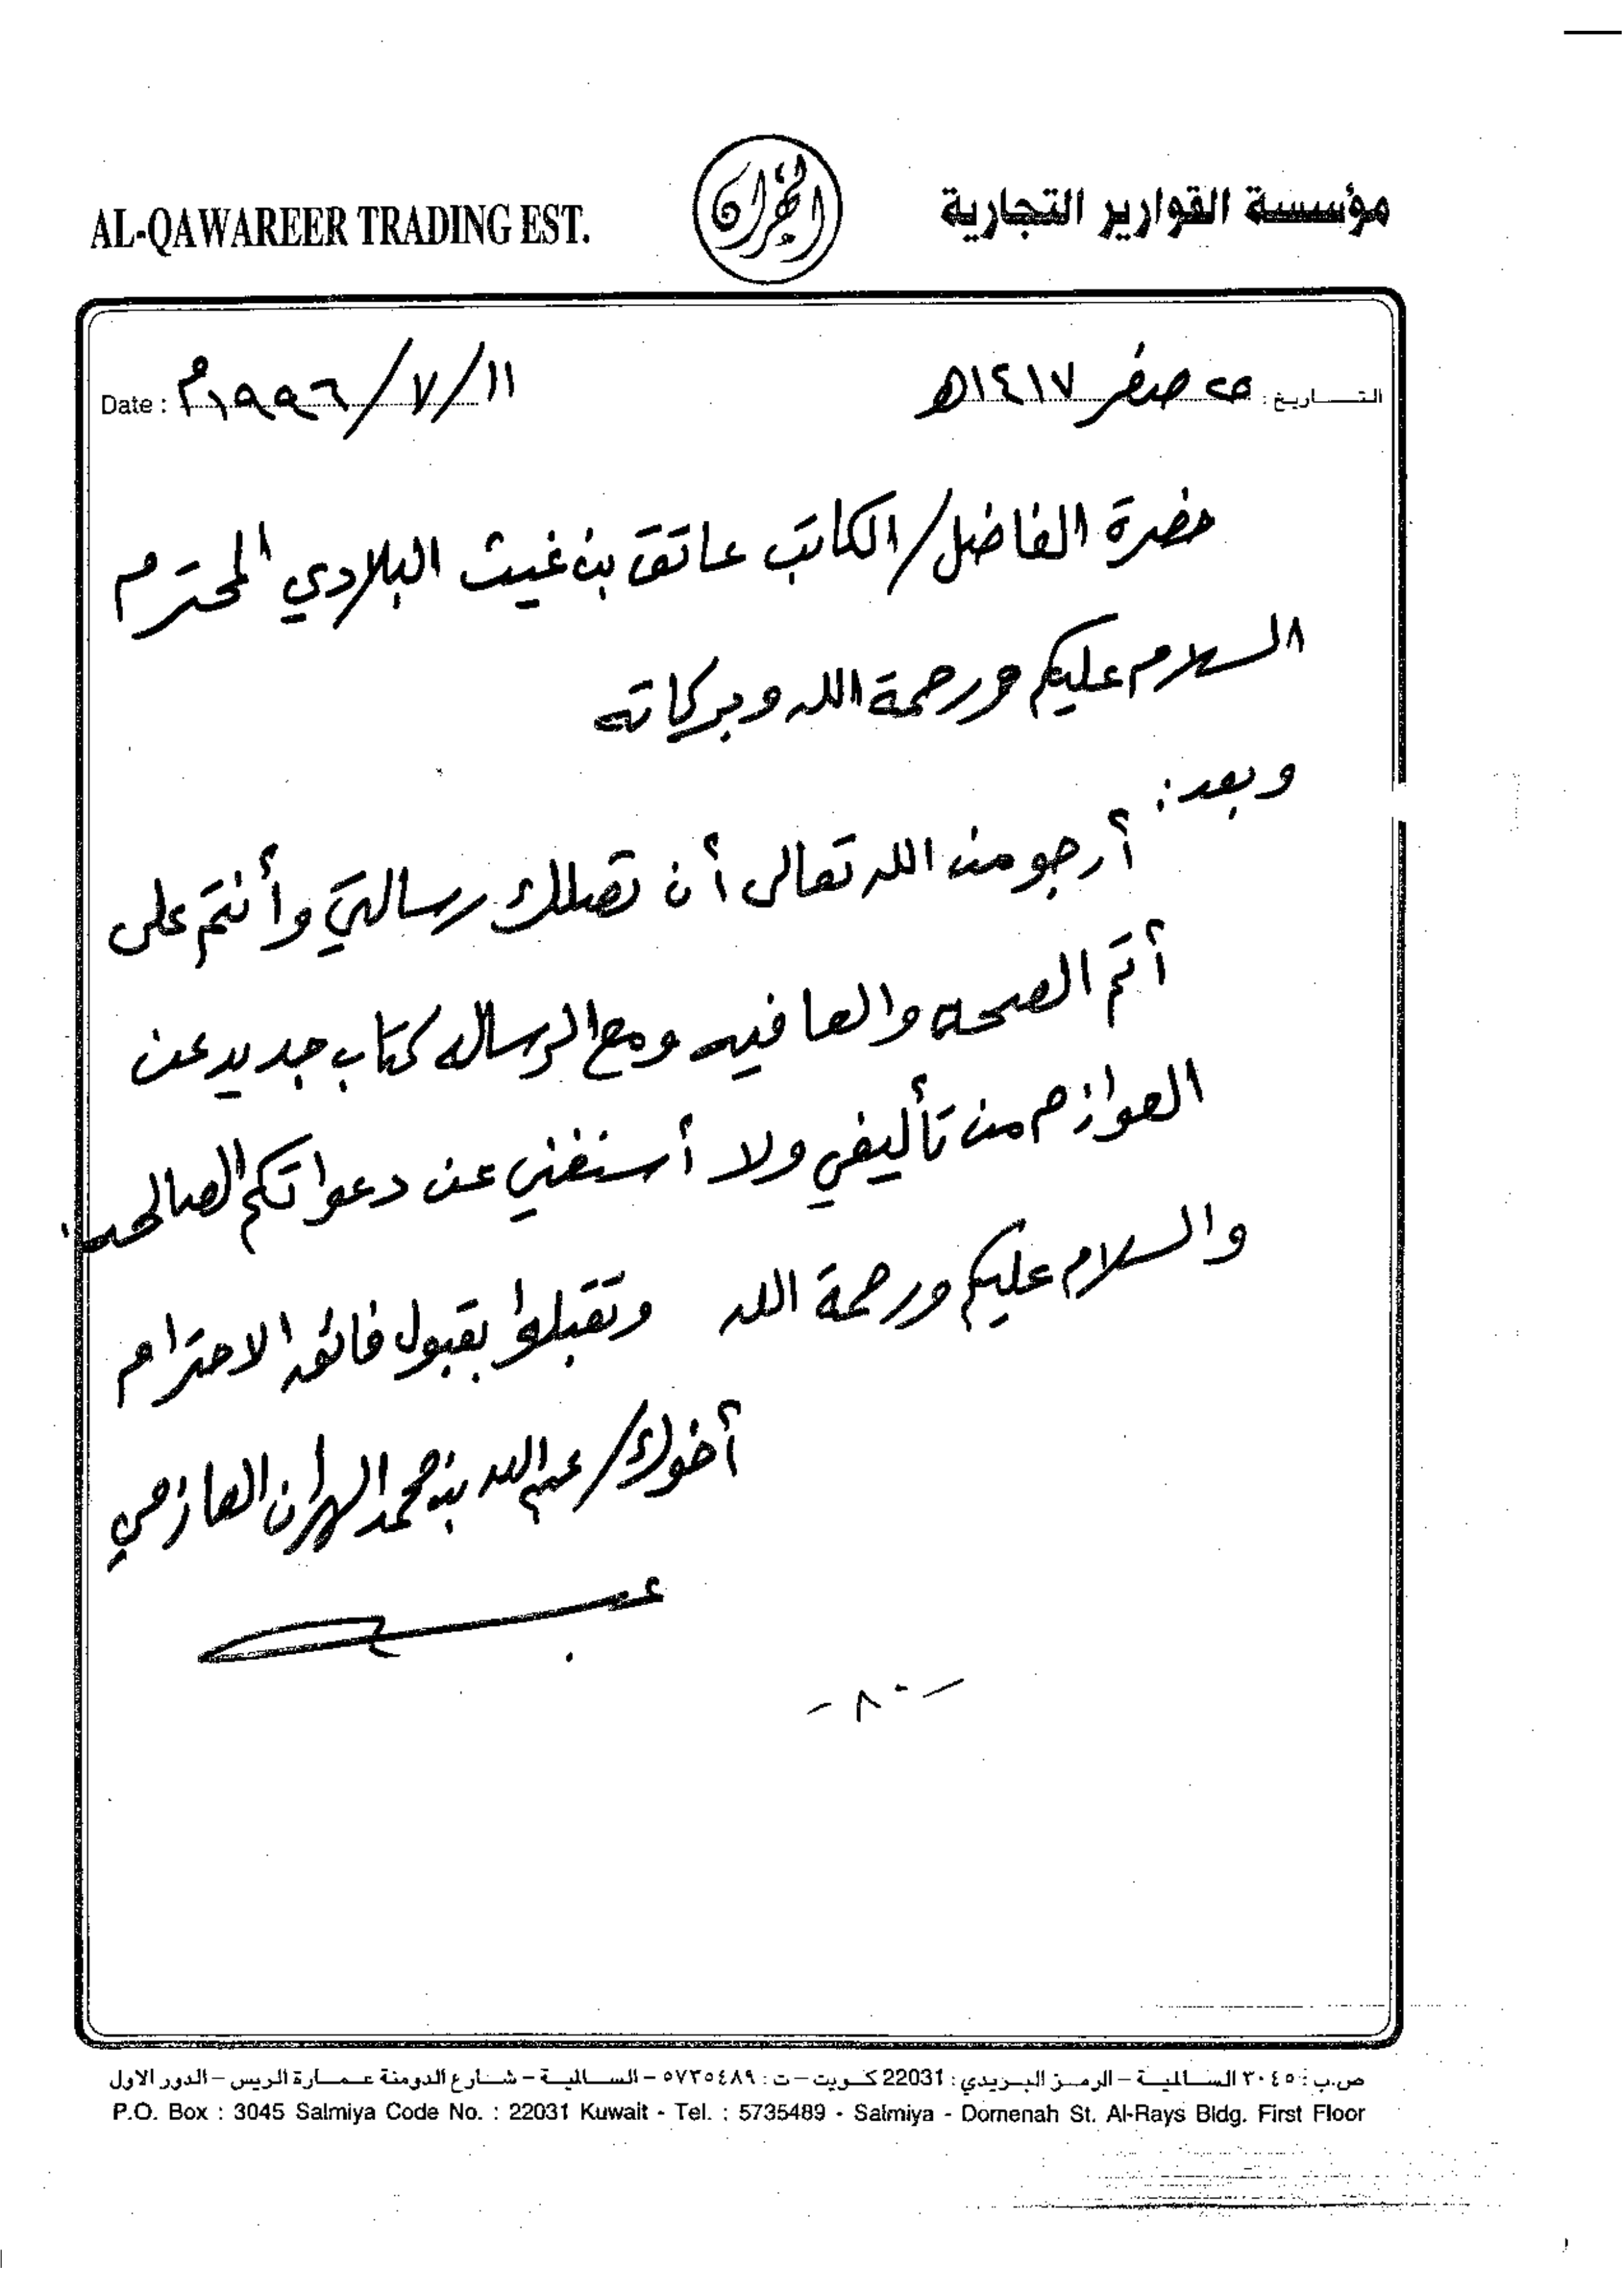 AL-QAWAREER TRADING EST.
مؤسسة القوارير التجارية
التاريخ: ٢٥ صفر ١٤١٧هـ
Date : ١١/٧/١٩٩٦م
حضرة الفاضل/الكاتب عاتق بن غيث البلادي المحترم
السلام عليكم ورحمة الله وبركاته
وبعد:
أرجو من الله تعالى أن تصلك رسالتي وأنتم على
أتم الصحه والعافيه ومع الرساله كتاب جديد عن
العوازم من تأليفي ولا أستغني عن دعواتكم الصالحه.
والسلام عليكم ورحمة الله وتقبلوا بقبول فائق الاحترام
أخوك/عبدالله بن محمد الهران العازمي
- ٨٠ -
ص.ب: ٣٠٤٥ السالمية - الرمز البريدي: 22031 كويت - ت: ٥٧٣٥٤٨٩ - السالمية - شارع الدومنة عمارة الريس - الدور الاول
P.O. Box : 3045 Salmiya Code No. : 22031 Kuwait - Tel. : 5735489 - Salmiya - Domenah St. Al-Rays Bldg. First Floor